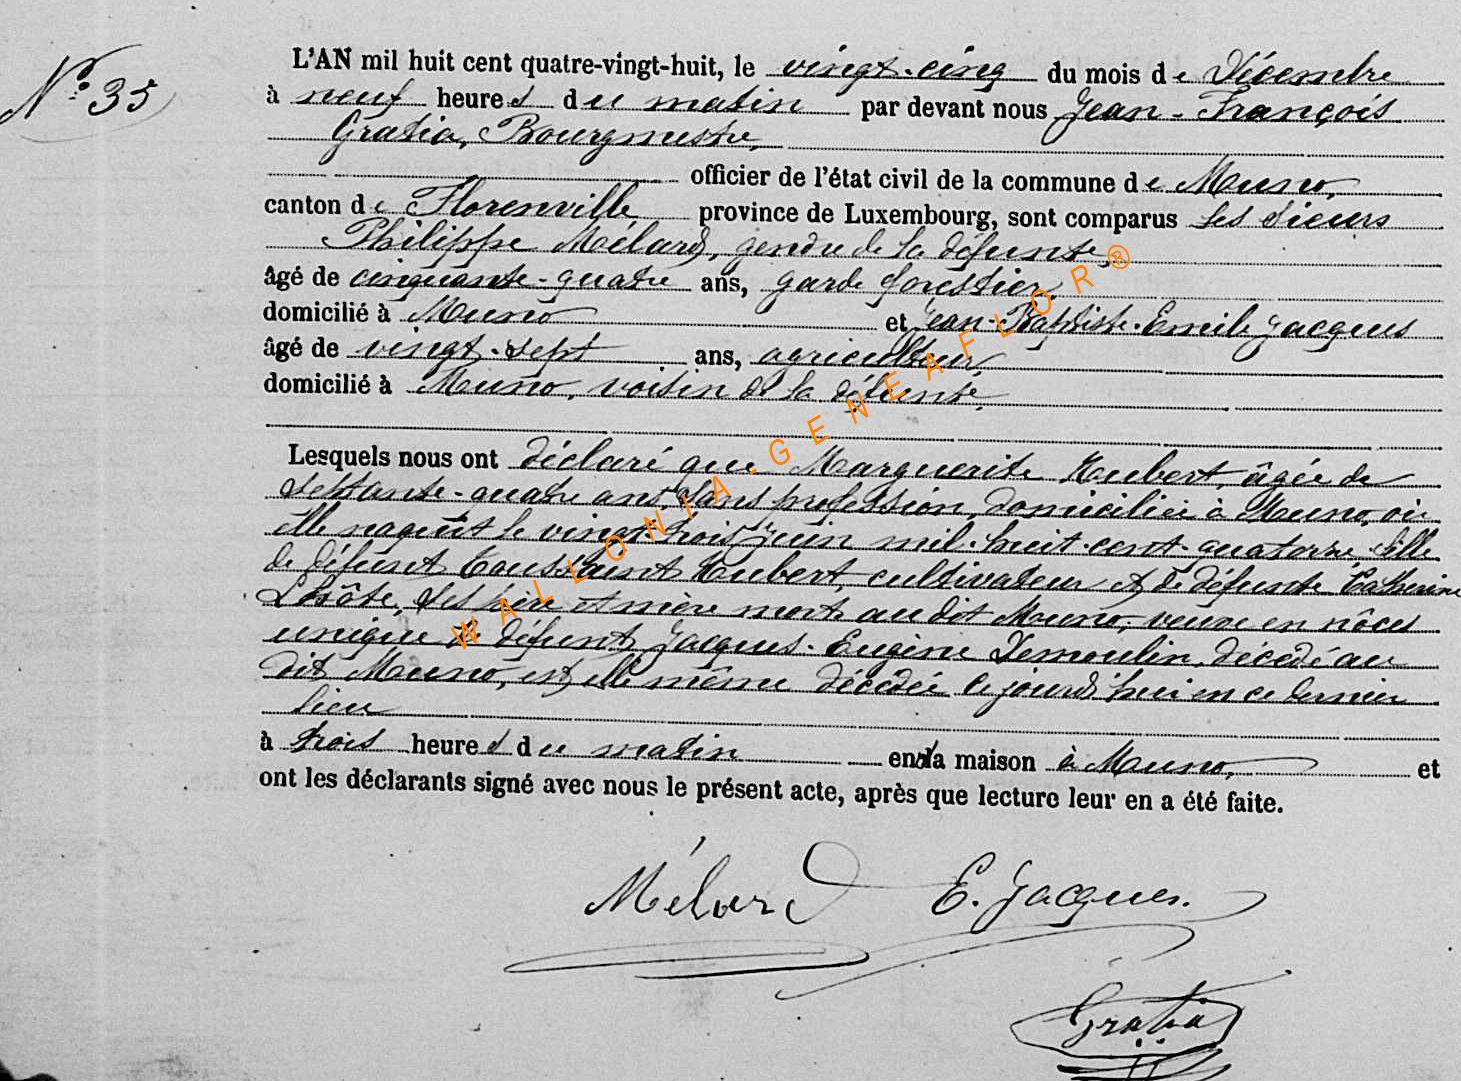 N° 35
L'AN mil huit cent quatre-vingt-huit, le vingt-cinq du mois de Décembre
à neuf heures du matin par devant nous Jean-François
Gratia, Bourgmestre,
officier de l'état civil de la commune de Muno,
canton de Florenville province de Luxembourg, sont comparus les sieurs
Philippe Mélard, gendre de la défunte,
âgé de cinquante-quatre ans, garde forestier,
domicilié à Muno et Jean-Baptiste-Emile Jacques
âgé de vingt-sept ans, agriculteur,
domicilié à Muno, voisin de la défunte,
Lesquels nous ont déclaré que Marguerite Hubert, âgée de
septante-quatre ans, sans profession, domiciliée à Muno, où
elle naquit le vingt-trois juin mil-huit-cent-quatorze, fille
de défunt Toussaint Hubert, cultivateur et de défunte Catherine
ses père et mère morts au dit Muno, veuve en nôces
unique de défunt Jacques-Eugène Demoulin, décédé au
dit Muno, est elle même décédée ce jourd'hui en ce dernier
lieu
à trois heures du matin en sa maison à Muno, et
ont les déclarants signé avec nous le présent acte, après que lecture leur en a été faite.
Mélard E. Jacques.
Gratia
WALLONIA-GENEAFLOR®